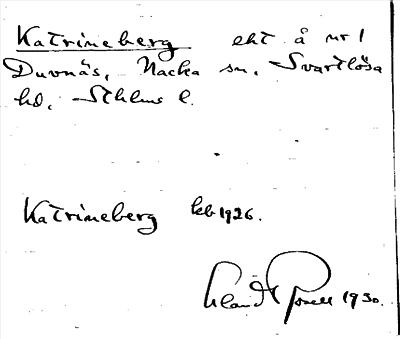 Katrineberg eht å nr 1
Duvnäs, Nacka sn, Svartlösa
hd, Sthlms l.
Katrineberg kb 1926.
1930.